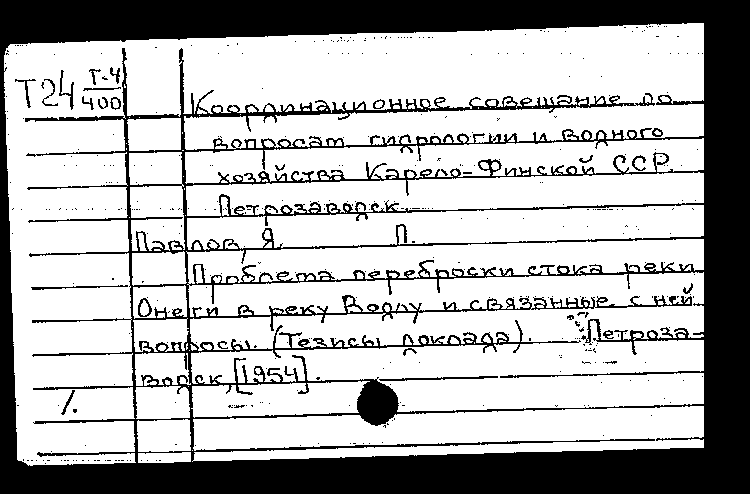 Т24 Т-4
400
Координационное совещание по
вопросам гидрологии и водного
хозяйства Карело-Финской ССР.
Петрозаводск.
Павлов, Я. П.
Проблема переброски стока реки
Онеги в реку Водлу и связанные с ней
вопросы. (Тезисы доклада). Петроза-
водск, [1954].
1.